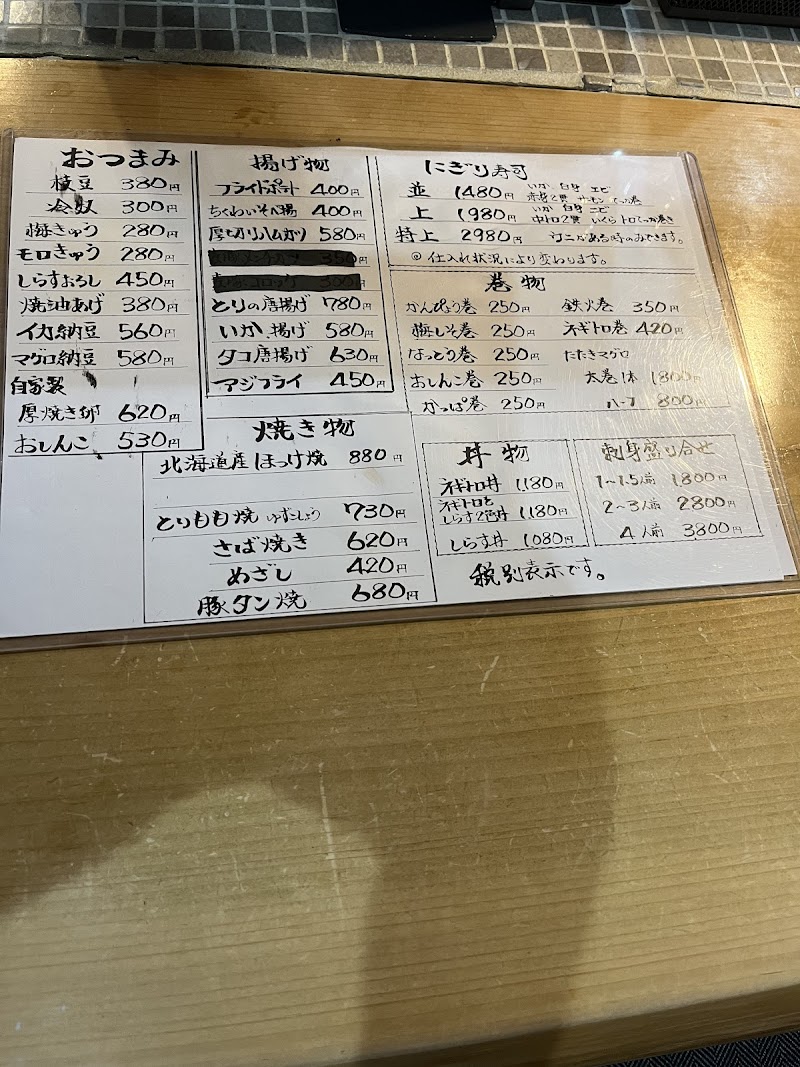 おつまみ
枝豆 380円
冷奴 300円
梅きゅう 280円
モロきゅう 280円
しらすおろし 450円
焼油あげ 380円
イカ納豆 560円
マグロ納豆 580円
自家製
厚焼き卵 620円
おしんこ 530円
揚げ物
フライドポテト 400円
ちくわいそべ揚 400円
厚切りハムカツ 580円
350円
コロッケ 300円
とりの唐揚げ 780円
いか揚げ 580円
タコ唐揚げ 630円
アジフライ 450円
焼き物
北海道産ほっけ焼 880円
とりもも焼 ゆずこしょう 730円
さば焼き 620円
めざし 420円
豚タン焼 680円
にぎり寿司
並 1480円 いか 白身 エビ
赤身2貫 サーモン てっか巻
上 1980円 いか 白身 エビ
中トロ2貫 いくら トロてっか巻き
特上 2980円 ウニがある時のみできます。
◎仕入れ状況により変わります。
巻物
かんぴょう巻 250円 鉄火巻 350円
梅しそ巻 250円 ネギトロ巻 420円
なっとう巻 250円 たたきマグロ
おしんこ巻 250円 太巻1本 1800円
かっぱ巻 250円 ハーフ 800円
丼物
ネギトロ丼 1,180円
ネギトロと
しらす2色丼 1,180円
しらす丼 1080円
刺身盛り合せ
1〜1.5人前 1800円
2〜3人前 2800円
4人前 3800円
税別表示です。